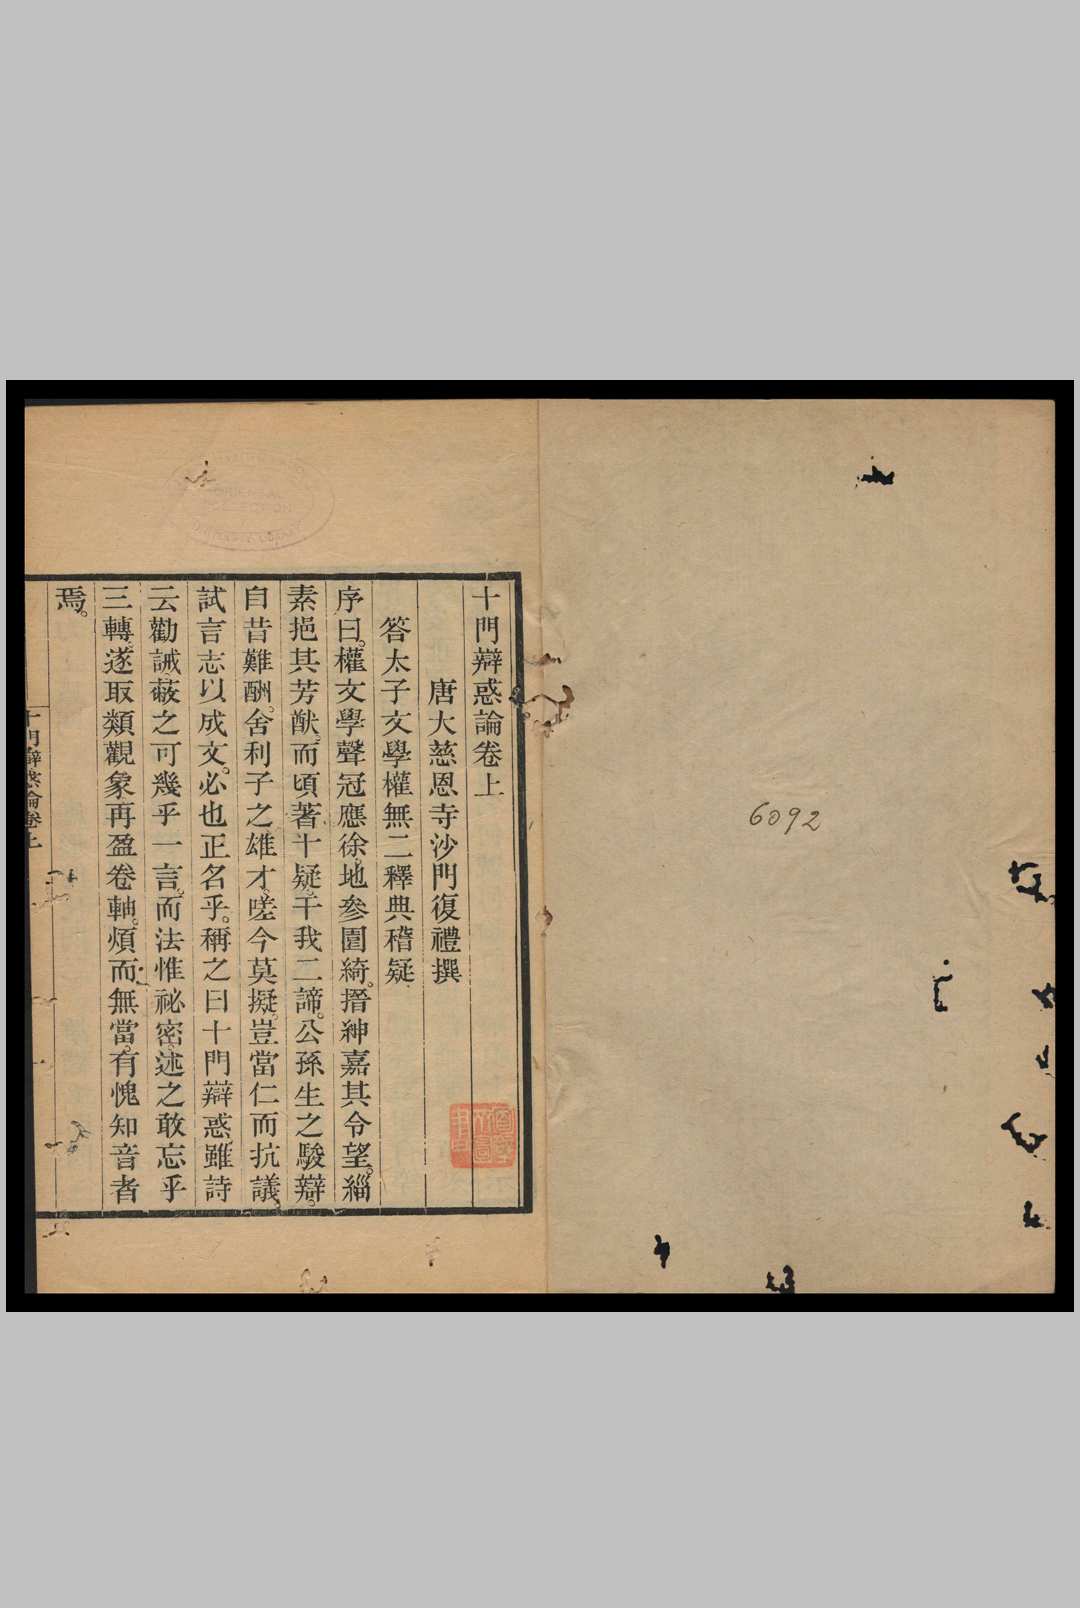 6092
十門辯惑論卷上
唐大慈恩寺沙門復禮撰
答太子文學權無二釋典稽疑
序曰。權文學聲冠應徐。地參園綺。搢紳嘉其令望。緇
素挹其芳猷。而頃著十疑。干我二諦。公孫生之駿辯。
自昔難酬。舍利子之雄才。嗟今莫擬。豈當仁而抗議。
試言志以成文。必也正名乎。稱之曰十門辯惑。雖詩
云勸誡蔽之可幾乎一言。而法惟祕密。述之敢忘乎
三轉。遂取類觀象。再盈卷軸。煩而無當。有愧知音者
焉。
十門辯惑論卷上